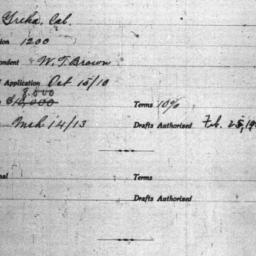 Yreka, Cal.
ion 1200
ndent W. T. Brown
Application Oct 15/10
8,000
$10,000 Terms 10%
Mch 14/13 Drafts Authorized Feb. 25, 19
nal Terms
Drafts Authorized